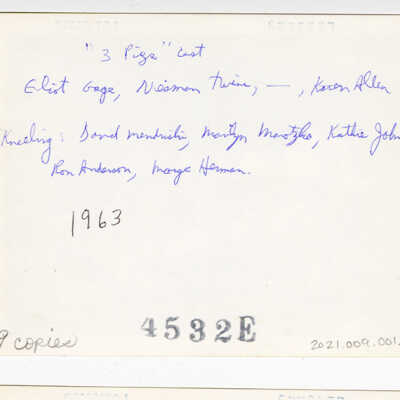 "3 Pigs" cast
Eliot Gage, Neiman twins, —, Karen Allen
Kneeling: David Mendrishi, Marilyn Marotzka, Kathie John
Ron Anderson, Marge Herman.
1963
4532E
9 copies
2021.009.001.